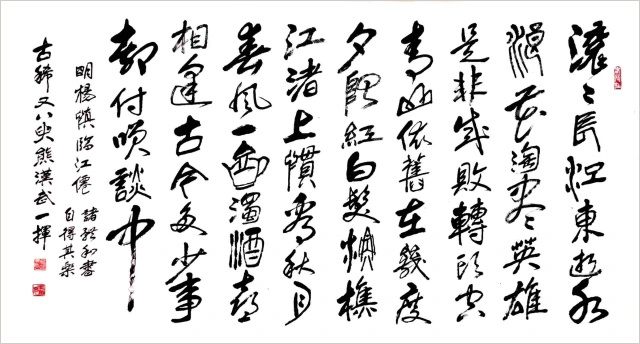 滚〻長江東逝水
浪花淘尽英雄
是非成敗轉头空
青山依舊在幾度
夕陽紅白髮漁樵
江渚上慣看秋月
春風一壺濁酒喜
相逢古今多少事
都付笑談中
明楊慎臨江僊
自得其樂
古稀又八叟熊漢武一揮